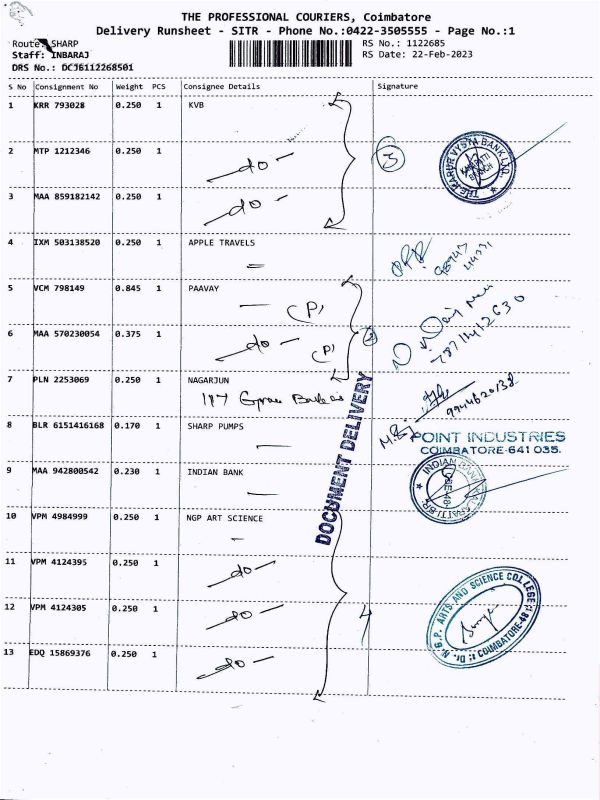 THE PROFESSIONAL COURIERS, Coimbatore
Delivery Runsheet - SITR - Phone No.:0422-3505555 - Page No.:1
Route: SHARP
RS No.: 1122685
Staff: INBARAJ
RS Date: 22-Feb-2023
DRS No.: DCJ6112268501
S No Consignment No Weight PCS Consignee Details Signature
1 KRR 793028 0.250 1 KVB
2 MTP 1212346 0.250 1
-do-
3
THE KARUR VYSYA BANK LTD.
BRANCH
3 MAA 859182142 0.250 1
-do-
4 IXM 503138520 0.250 1 APPLE TRAVELS
5 VCM 798149 0.845 1 PAAVAY
(P)
6 MAA 570230054 0.375 1
-do- (P)
7 PLN 2253069 0.250 1 NAGARJUN
9944620138
DOCUMENT DELIVERY
8 BLR 6151416168 0.170 1 SHARP PUMPS
POINT INDUSTRIES
COIMBATORE-641 035.
9 MAA 942800542 0.230 1 INDIAN BANK
INDIAN BANK
10 VPM 4984999 0.250 1 NGP ART SCIENCE
11 VPM 4124395 0.250 1
-do-
12 VPM 4124305 0.250 1
-do-
4
Dr. N.G.P. ARTS AND SCIENCE COLLEGE
COIMBATORE-48
13 EDQ 15869376 0.250 1
-do-